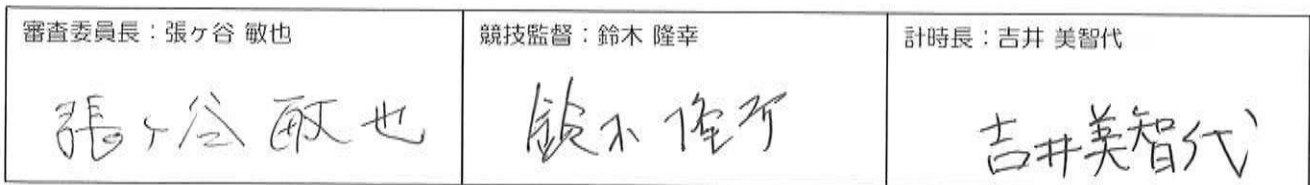 審査委員長：張ヶ谷 敏也
競技監督：鈴木 隆幸
計時長：吉井 美智代
張ヶ谷 敏也
鈴木 隆幸
吉井美智代